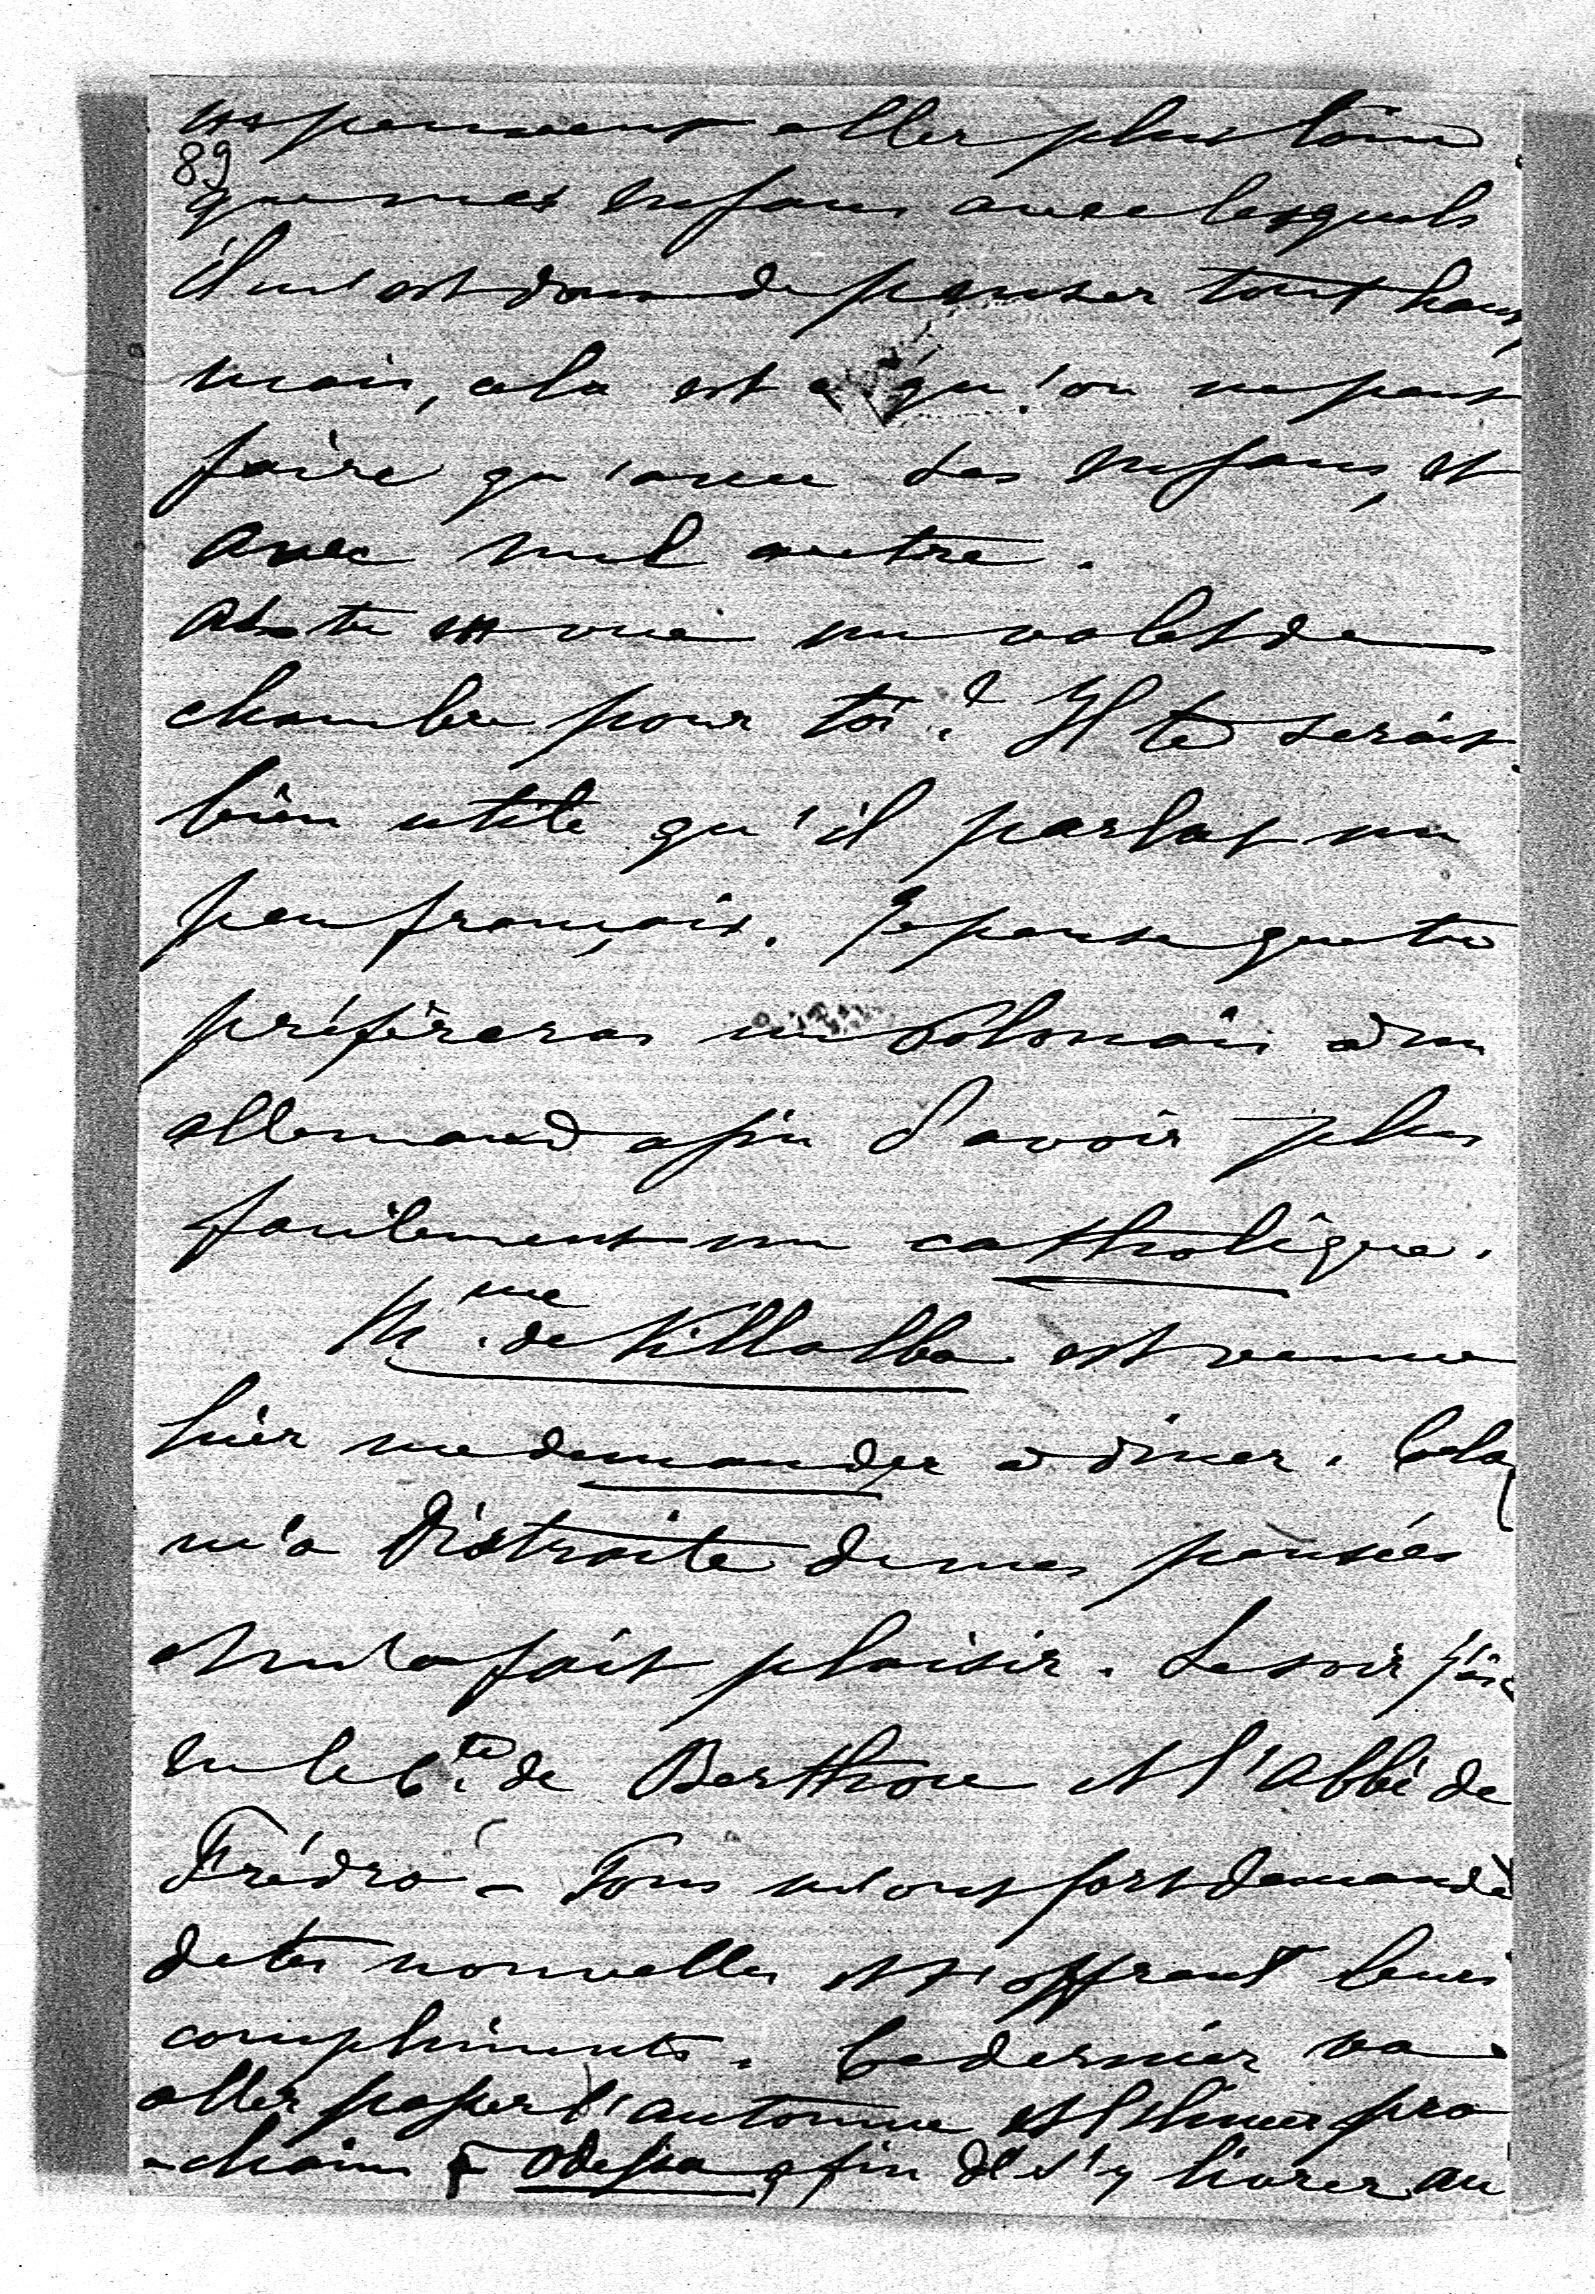 ne peuvent aller plus loin
89
que mes enfans avec lesquels
il m'est doux de penser tout haut,
mais, cela est qu'on ne peut
faire qu'avec des enfans, et
avec nul autre.
As-tu un valet de
chambre pour toi ? Il te serait
bien utile qu'il parlat un
peu français. Je pense que tu
préfèreras un Polonais à un
allemand afin d'avoir plus
facilement un catholique.
Mme de Villalba est venue
hier me demander à diner. Cela
m'a distraite de mes pensées
et m'a fait plaisir. Le soir j'ai
vu le Cte de Berthou et l'abbé de
Frédro - Tous m'ont fort demandé
de tes nouvelles et t'offrent leurs
compliments. Ce dernier va
aller passer l'automne et l'hiver pro
-chain à Odessa afin de s'y livrer au